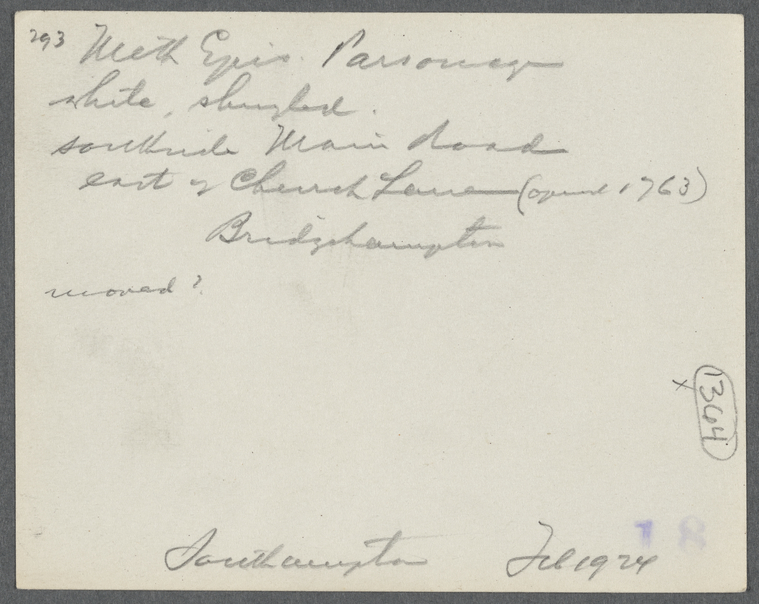 293 Meth Epis. Parsonage
white, shingled.
southside Main Road
east of Church Lane (opened 1763)
Bridgehampton
moved?
x 1364
18
Southampton Feb 1924